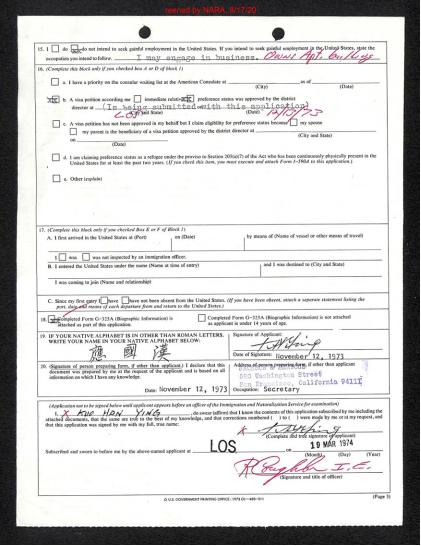 reened by NARA, 8/17/20
15. I do do not intend to seek gainful employment in the United States. If you intend to seek gainful employment in the United States, state the
occupation you intend to follow. I may engage in business. Owns Apt. buildings
16. (Complete this block only if you checked box A or D of block 1)
a. I have a priority on the consular waiting list at the American Consulate at as of
(City) (Date)
b. A visa petition according me immediate relative preference status was approved by the district
director at (Is being submitted with this application)
LOS (City and State) (Date) 12/13/73
c. A visa petition has not been approved in my behalf but I claim eligibility for preference status because my spouse
my parent is the beneficiary of a visa petition approved by the district director at
(City and State)
on
(Date)
d. I am claiming preference status as a refugee under the proviso to Section 203(a)(7) of the Act who has been continuously physically present in the
United States for at least the past two years. (If you check this item, you must execute and attach Form I-590A to this application.)
e. Other (explain)
17. (Complete this block only if you checked Box E or F of Block 1)
A. I first arrived in the United States at (Port) on (Date) by means of (Name of vessel or other means of travel)
I was was not inspected by an immigration officer.
B. I entered the United States under the name (Name at time of entry) and I was destined to (City and State)
I was coming to join (Name and relationship)
C. Since my first entry I have have not been absent from the United States. (If you have been absent, attach a separate statement listing the
port, date and means of each departure from and return to the United States.)
18. Completed Form G-325A (Biographic Information) is
attached as part of this application.
Completed Form G-325A (Biographic Information) is not attached
as applicant is under 14 years of age.
19. IF YOUR NATIVE ALPHABET IS IN OTHER THAN ROMAN LETTERS,
WRITE YOUR NAME IN YOUR NATIVE ALPHABET BELOW:
應 國 漢
Signature of Applicant:
Date of Signature: November 12, 1973
20. (Signature of person preparing form, if other than applicant.) I declare that this
document was prepared by me at the request of the applicant and is based on
all information on which I have any knowledge.
Date: November 12, 1973
Address of person preparing form, if other than applicant
550 Washington Street
San Francisco, California 94111
Occupation: Secretary
(Application not to be signed below until applicant appears before an officer of the Immigration and Naturalization Service for examination)
I, X KUO HAN YING do swear (affirm) that I know the contents of this application subscribed by me including the
attached documents, that the same are true to the best of my knowledge, and that corrections numbered ( ) to ( ) were made by me or at my request, and
that this application was signed by me with my full, true name:
X
(Complete and true signature of applicant)
Subscribed and sworn to before me by the above-named applicant at LOS on 19 MAR 1974
(Month) (Day) (Year)
(Signature and title of officer)
U.S. GOVERNMENT PRINTING OFFICE
(Page 3)